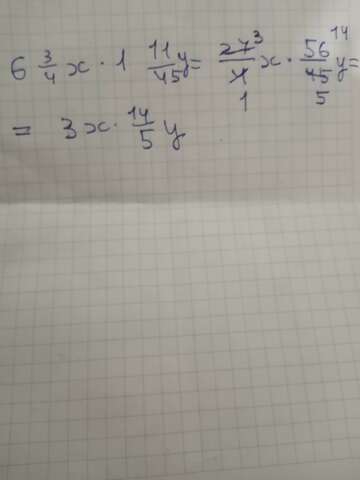 6 3/4 x · 1 11/45 y = 27 3/4 1 x · 56 14/45 5 y =
= 3x · 14/5 y